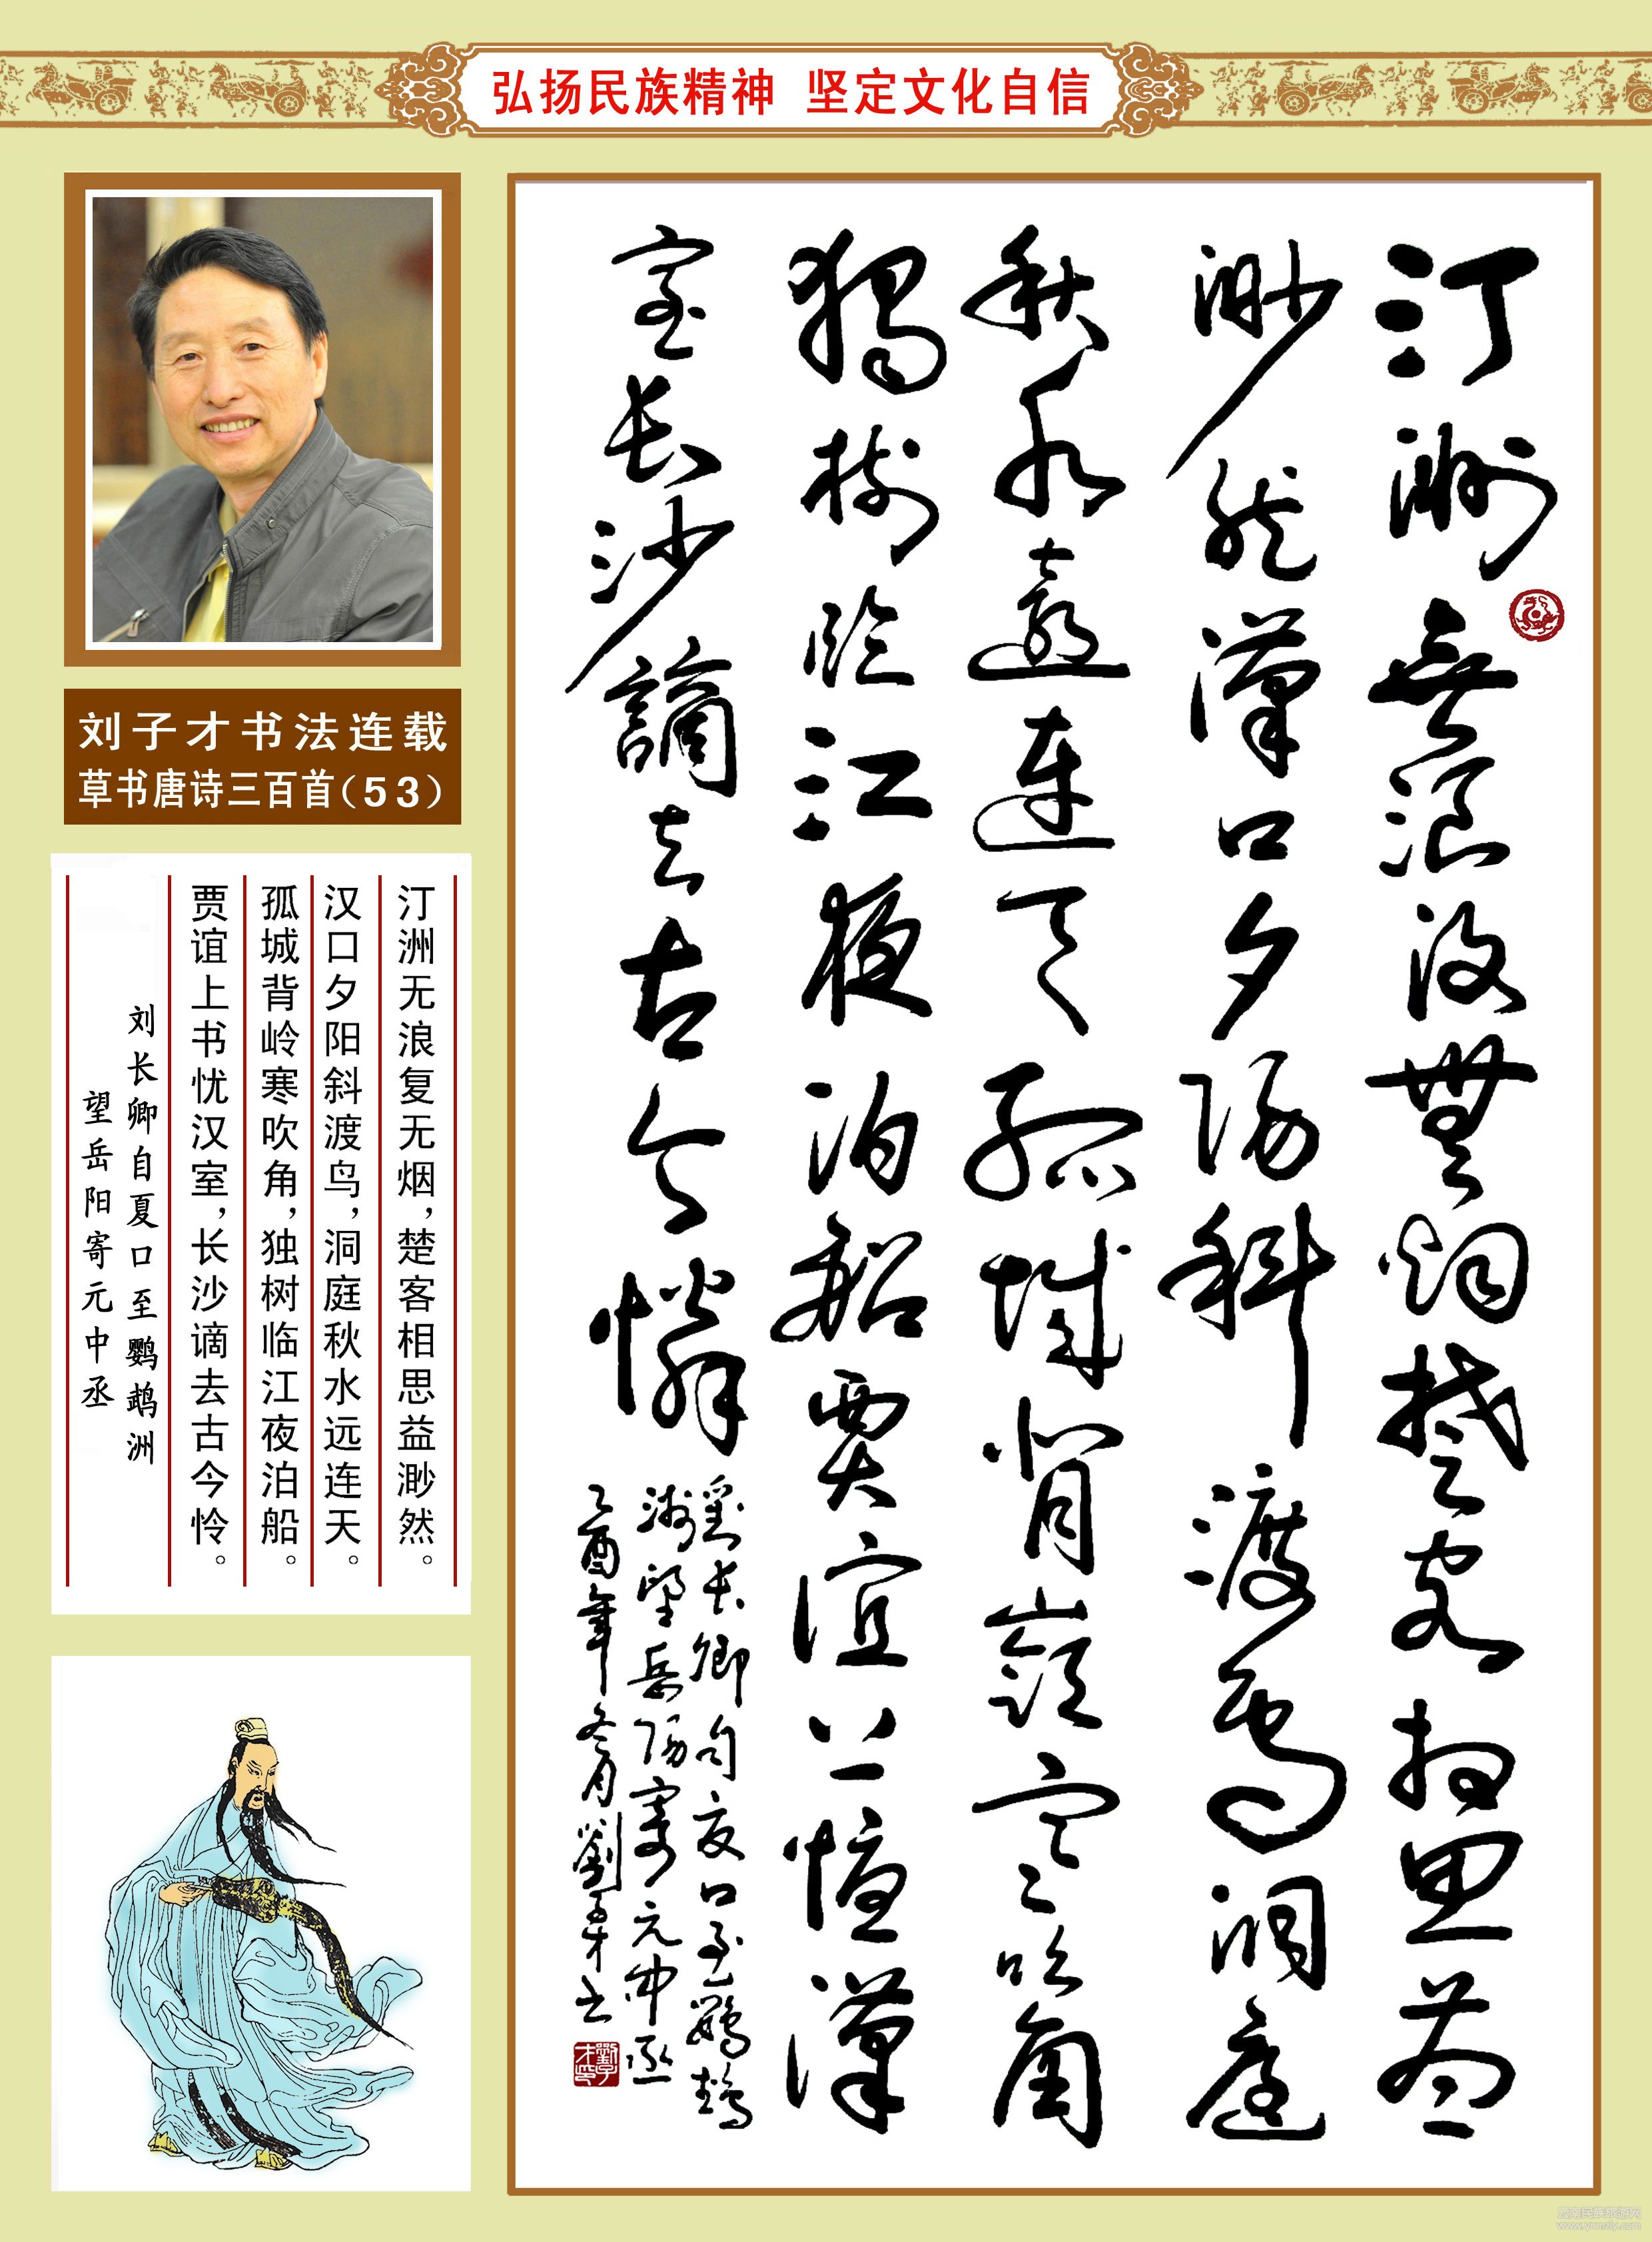 弘扬民族精神 坚定文化自信
刘子才书法连载
草书唐诗三百首(53)
汀洲无浪复无烟,楚客相思益渺然。
汉口夕阳斜渡鸟,洞庭秋水远连天。
孤城背岭寒吹角,独树临江夜泊船。
贾谊上书忧汉室,长沙谪去古今怜。
刘长卿自夏口至鹦鹉洲
望岳阳寄元中丞
汀洲無浪復無烟楚客相思益
渺然漢口夕陽斜渡鳥洞庭
秋水遠連天孤城背嶺寒吹角
獨樹臨江夜泊船賈誼上書憂漢
室長沙謫去古今憐
劉長卿自夏口至鸚鵡
洲望岳陽寄元中丞
乙酉年冬月劉子才書
劉子才印
www.ynmzly.com